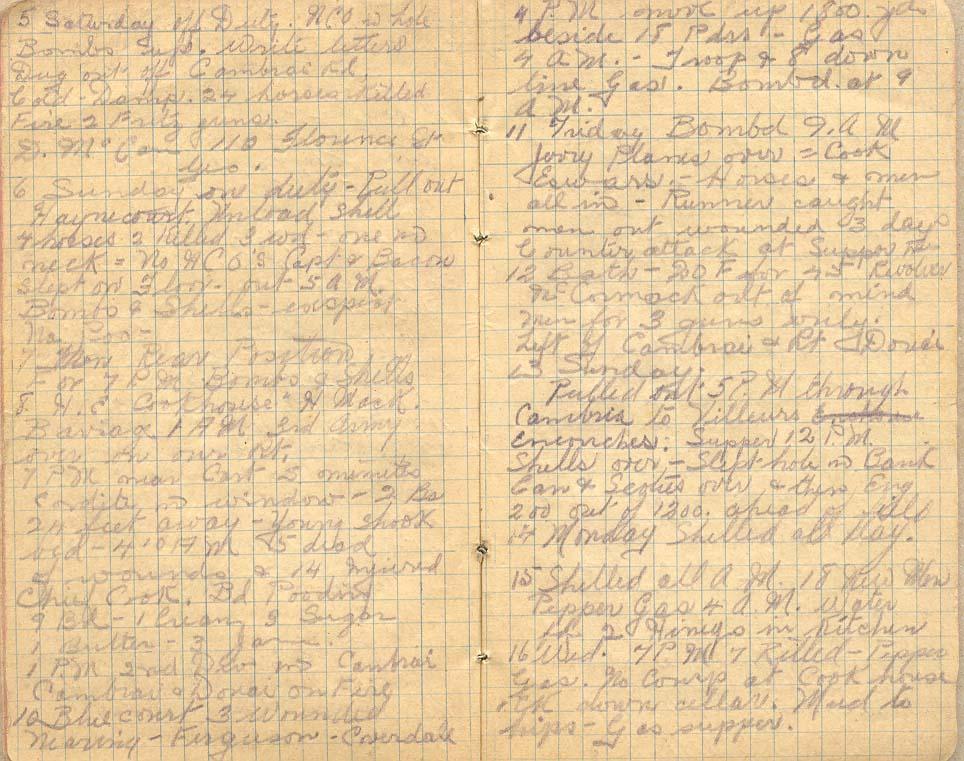 5 Saturday off Duty. NCO in hole
Bombs Sups. Write letters
Dug out off Cambrai Rd
Cold - Damp. 24 horses killed
Fire 2 Fritz guns.
D. Mc 110 Florence St
6 Sunday one duty - Pull out
Haynecourt Unload Shell
4 horses 2 Killed 2 wd - one in
neck = No NCO's Capt & Bacon
Slept on Floor - out 5 A.M.
Bombs & Shells -
No
7 Mon Rear Position
For 7 P.M. Bombs & Shells
8. H.E. Cookhouse
1 A.M. 3rd Army
over on our Rt.
7 P.M near Cart 2 minutes
Cordite in window - 2
24 feet away - Young shook
4 10 A M 5 died
of wounds & 14 injured
Chief Cook. Bd Pooding
9 Bd - 1 Cream 2 Sugar
1 Butter - 3 Jam
1 P.M 2nd Div in Cambrai
Cambrai & Douai on Fire
10 Blecourt 3 wounded
- Ferguson - Coverdale
4 P.M move up 1800 yds
beside 18 Pdrs - Gas
4 A.M. - Troop & 8" down
line Gas. Bombd. at 9
A M.
11 Friday Bombd 9. A M
Jerry Planes over = Cook
Eswars. - Horses & men
all in - Runner caught
men out wounded 3 days
Counter attack at Supper
12 Bath - 200 F for 45 Revolver
McCormack out of mind
Men for 3 guns only.
Left of Cambrai & Rt of Douai
13 Sunday.
Pulled out 5 P. M through
Cambrai to
Supper 12 P.M.
Shells over, - Slept hole in Bank
Can & Scouts over & then Eng
200 out of 1200. ahead of
14 Monday Shelled all Day.
15 Shelled all A. M. 18 New Men
Pepper Gas 4 A.M. Water
2 in Kitchen
16 Wed. 7 P.M 7 Killed - Pepper
Gas. No Comp at Cook house
down cellar. Mud to
hips - Gas supper.